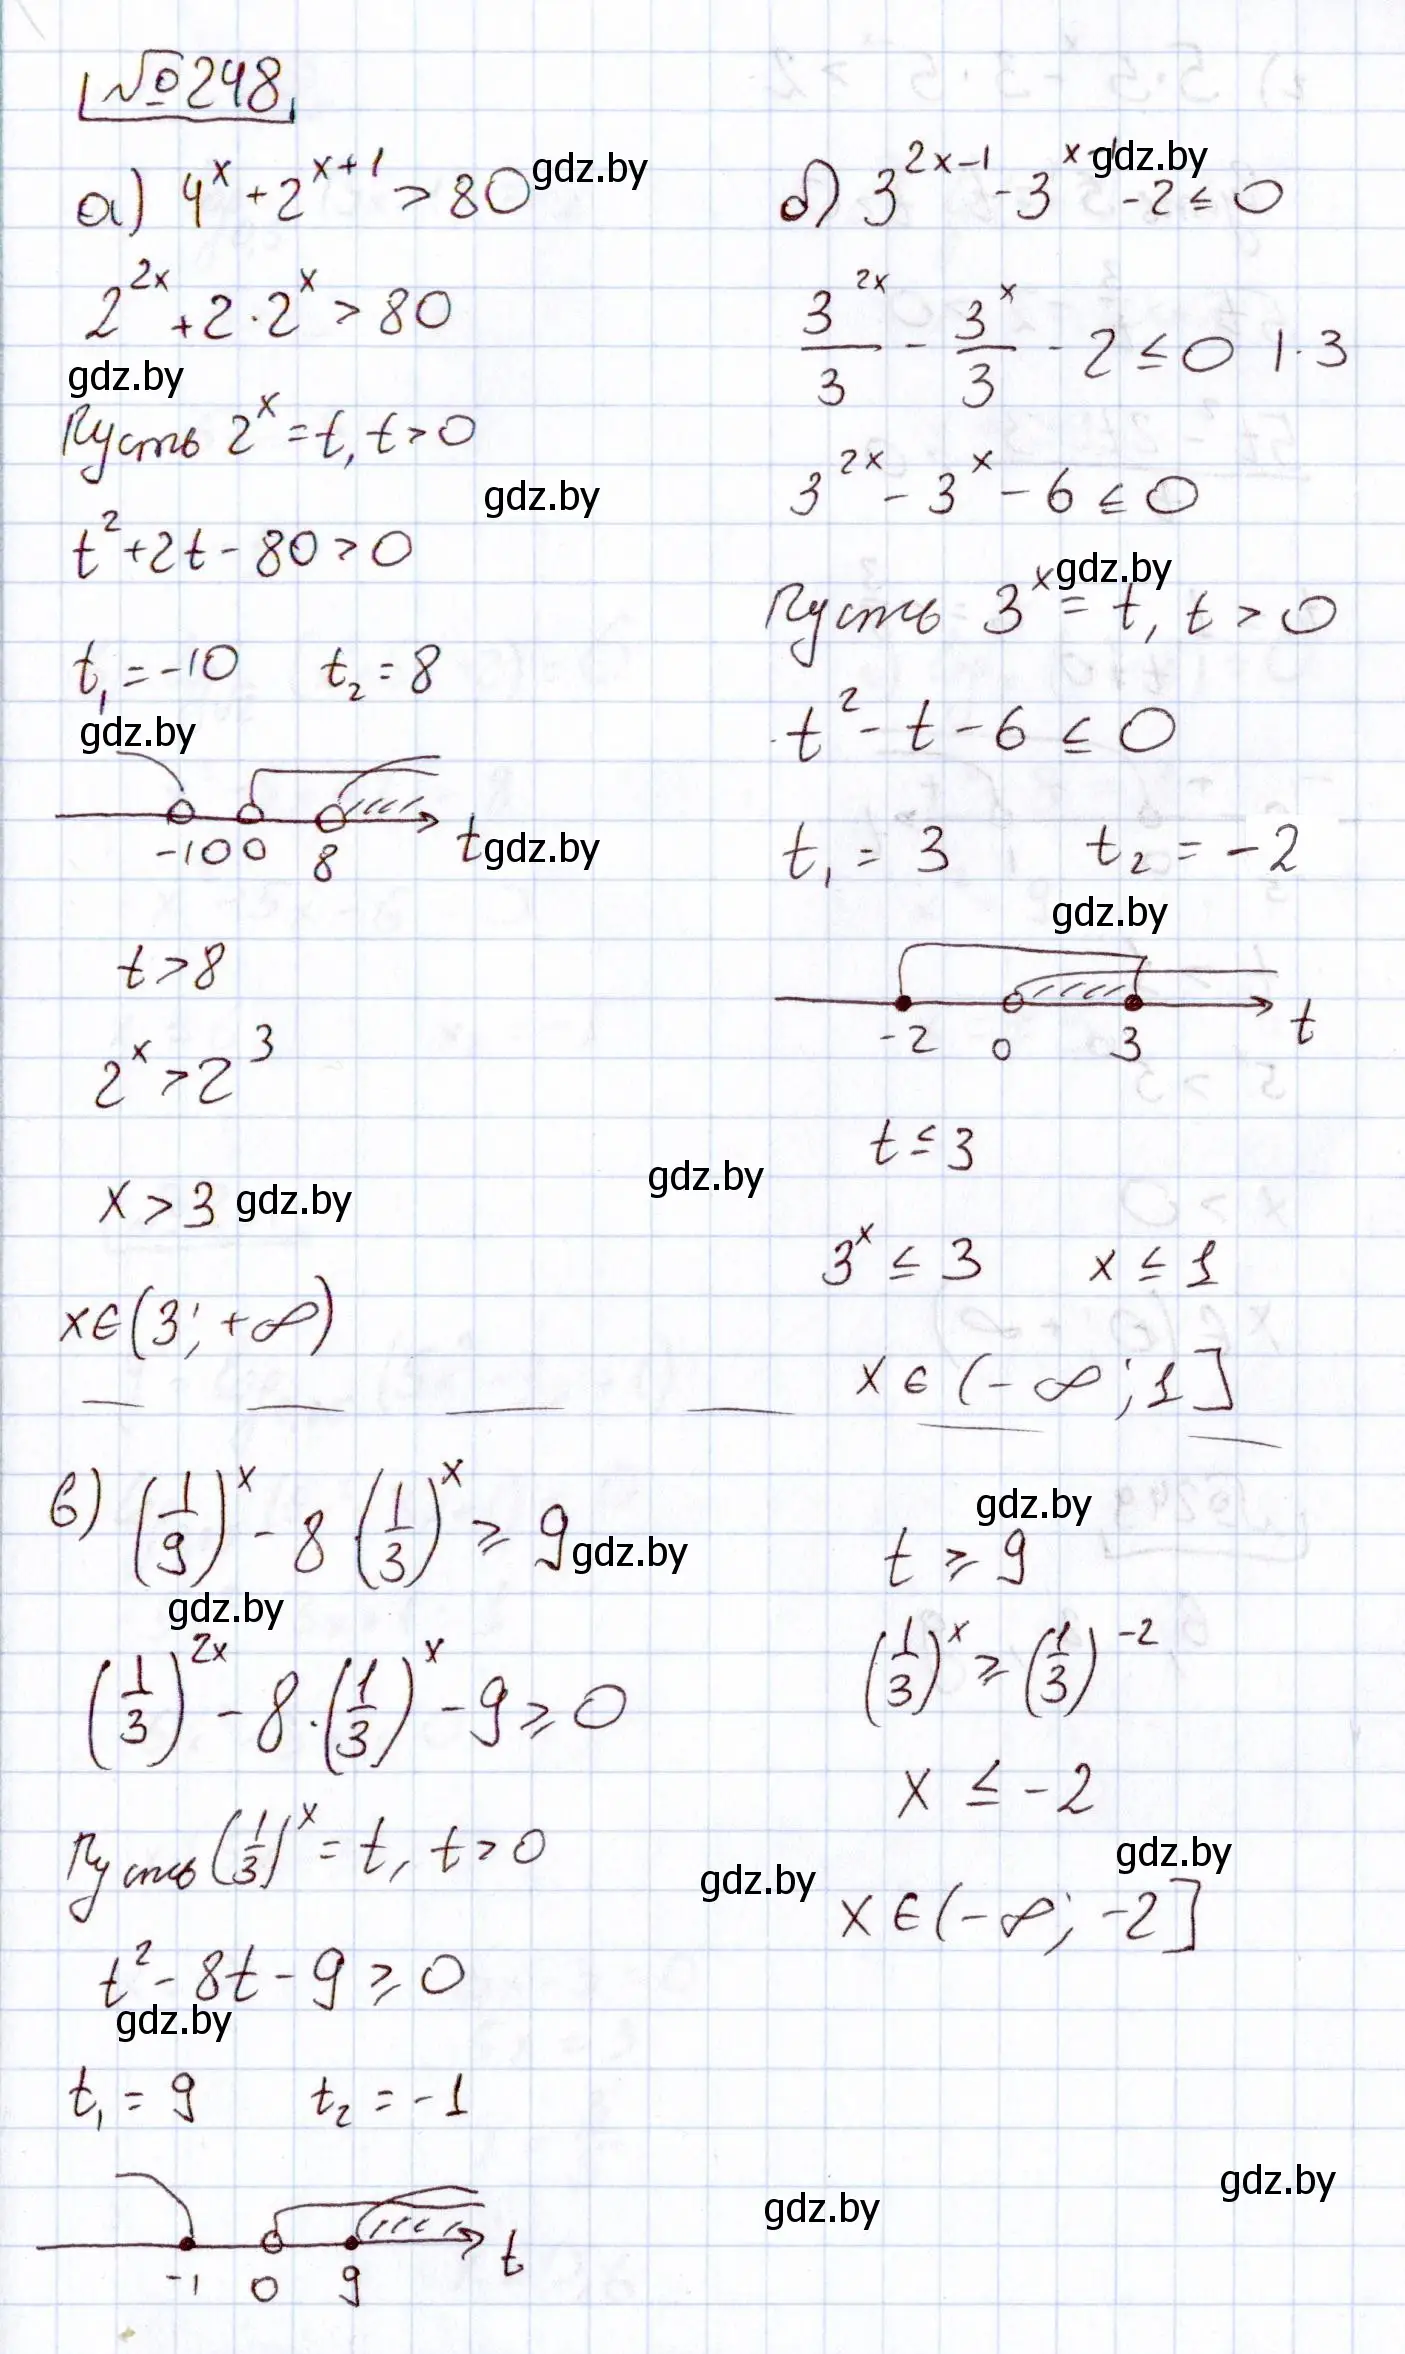 №248
а) 4^x + 2^{x+1} > 80 gdz.by
2^{2x} + 2·2^x > 80
gdz.by
Пусть 2^x = t, t > 0
gdz.by
t² + 2t - 80 > 0
t₁ = -10 t₂ = 8
gdz.by
-10 0 8 t gdz.by
t > 8
2^x > 2^3
x > 3 gdz.by
x ∈ (3; +∞)
б) 3^{2x-1} - 3^{x-1} - 2 ≤ 0 gdz.by
3^{2x}/3 - 3^x/3 - 2 ≤ 0 |·3
3^{2x} - 3^x - 6 ≤ 0
gdz.by
Пусть 3^x = t, t > 0
t² - t - 6 ≤ 0
t₁ = 3 t₂ = -2
gdz.by
-2 0 3 t
t ≤ 3
gdz.by
3^x ≤ 3 x ≤ 1
x ∈ (-∞; 1]
в) (1/9)^x - 8(1/3)^x ≥ 9 gdz.by
gdz.by
(1/3)^{2x} - 8·(1/3)^x - 9 ≥ 0
Пусть (1/3)^x = t, t > 0
gdz.by
t² - 8t - 9 ≥ 0
gdz.by
t₁ = 9 t₂ = -1
-1 0 9 t
gdz.by
t ≥ 9
(1/3)^x ≥ (1/3)^{-2}
x ≤ -2
gdz.by
x ∈ (-∞; -2]
gdz.by
gdz.by